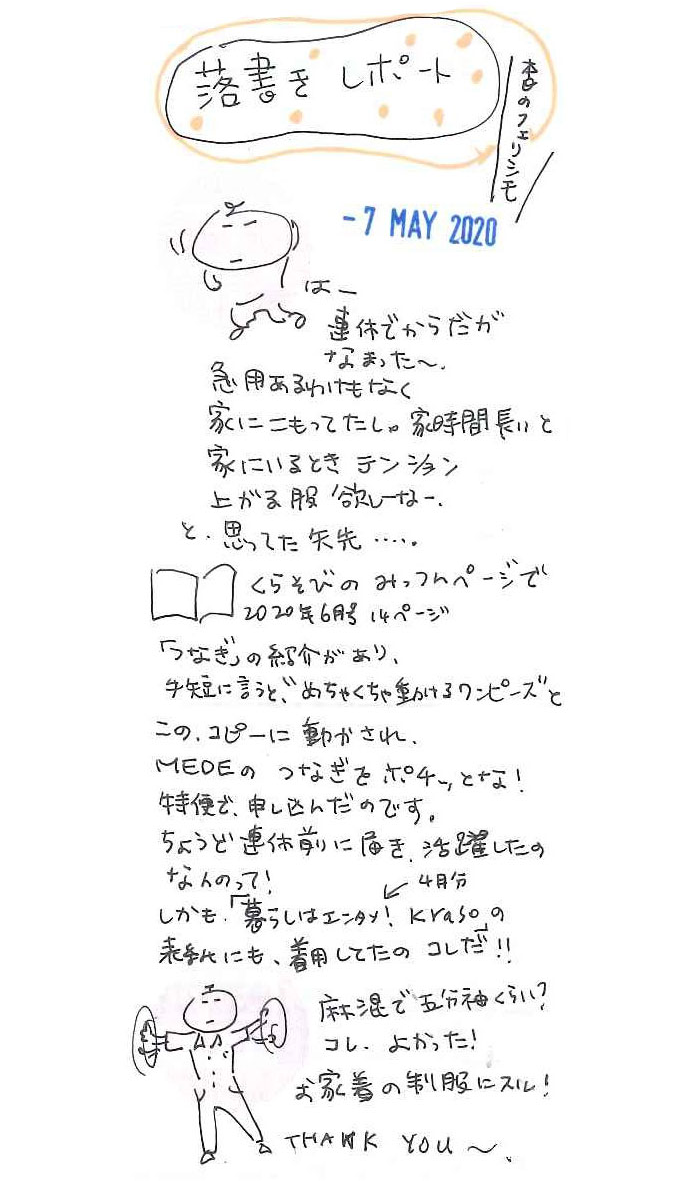 落書き レポート
杏のフェリシモ
-7 MAY 2020
はー
連休でからだが
なまった〜.
急用あるわけもなく
家にこもってたし。家時間長いと
家にいるとき テンション
上がる服 欲しーなー.
と.思ってた矢先‥‥.
くらそびの みっつんページで
2020年6月号 14ページ
「つなぎ」の紹介があり、
手短に言うと、"めちゃくちゃ動けるワンピーズ"と
この、コピーに動かされ、
MEDEの つなぎを ポチッとな!
特便で、申し込んだのです。
ちょうど連休前に届き、活躍したの
なんのって!
4月分
しかも、「暮らしはエンタメ! Kraso」の
表紙にも、着用してたの コレだ!!
麻混で五分袖くらい?
コレ、よかった!
お家着の制服にスル!
THANK YOU〜、